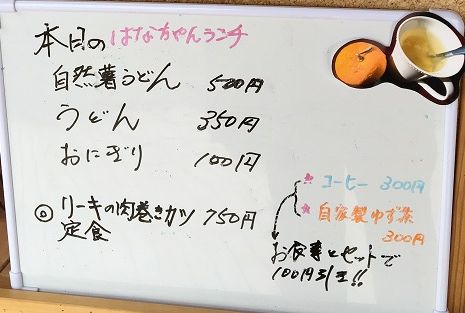 本日の はなちゃんランチ
自然薯うどん 500円
うどん 350円
おにぎり 100円
◎ リーキの肉巻きカツ 750円
定食
コーヒー 300円
自家製ゆず茶
300円
お食事とセットで
100円引き!!